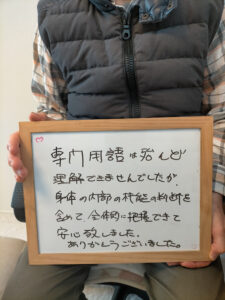 専門用語は殆んど
理解できませんでしたが、
身体の内部の機能の判断を
含めて全体的に把握できて
安心致しました。
ありがとうございました。